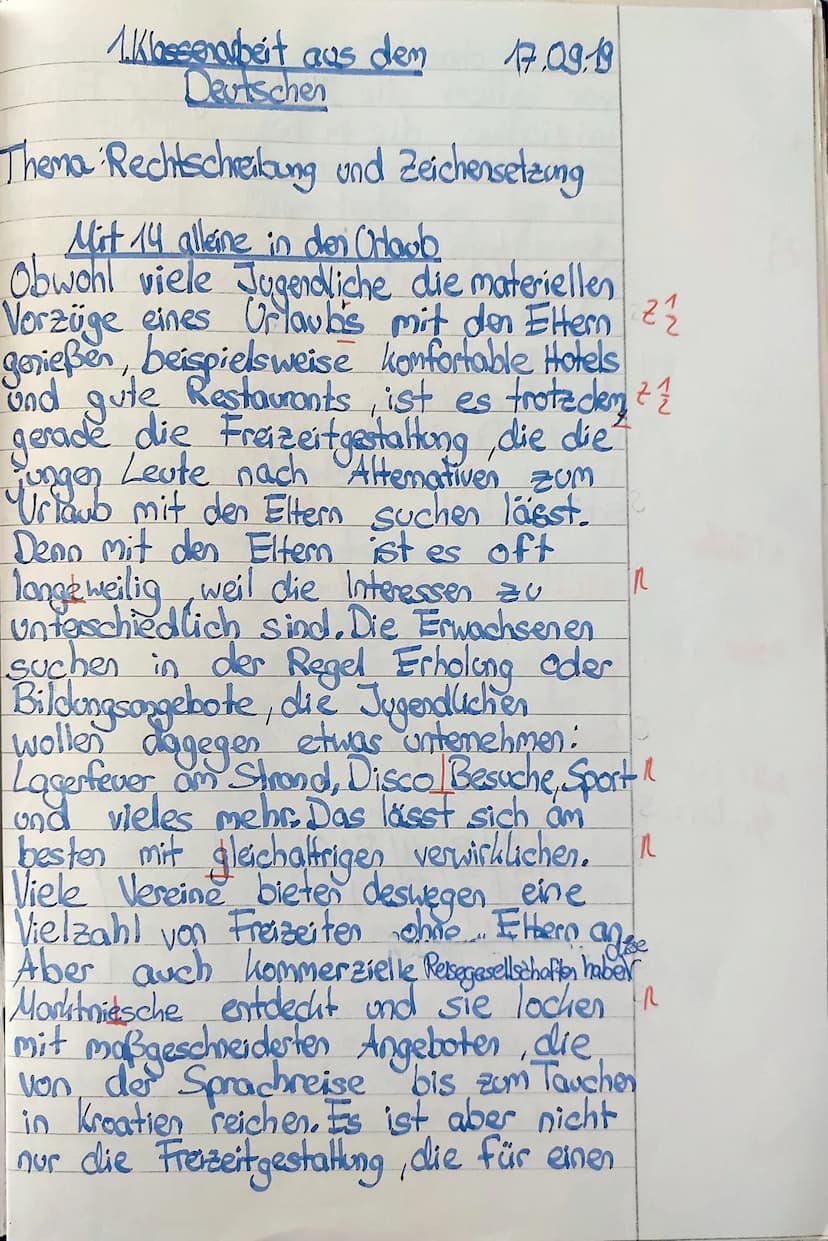 1. Klassenarbeit aus dem 17.09.19
Deutschen
Thema: Rechtschreibung und Zeichensetzung
Mit 14 alleine in den Urlaub
Obwohl viele Jugendliche die materiellen
Vorzüge eines Urlaub's mit den Eltern z 1/2
genießen, beispielsweise komfortable Hotels
und gute Restaurants, ist es trotzdem, z 1/2
gerade die Freizeitgestaltung, die die
jungen Leute nach Alternativen zum
Urlaub mit den Eltern suchen lässt.
Denn mit den Eltern ist es oft
langeweilig, weil die Interessen zu R
unterschiedlich sind. Die Erwachsenen
suchen in der Regel Erholung oder
Bildungsangebote, die Jugendlichen
wollen dagegen etwas unternehmen:
Lagerfeuer am Strand, Disco Besuche, Sport R
und vieles mehr. Das lässt sich am
besten mit gleichaltrigen verwirklichen. R
Viele Vereine bieten deswegen eine
Vielzahl von Freizeiten „ohne" Eltern an.
Aber auch kommerzielle Reisegesellschaften haben diese
Marktniesche entdeckt und sie locken R
mit maßgeschneiderten Angeboten, die
von der Sprachreise bis zum Tauchen
in Kroatien reichen. Es ist aber nicht
nur die Freizeitgestaltung, die für einen